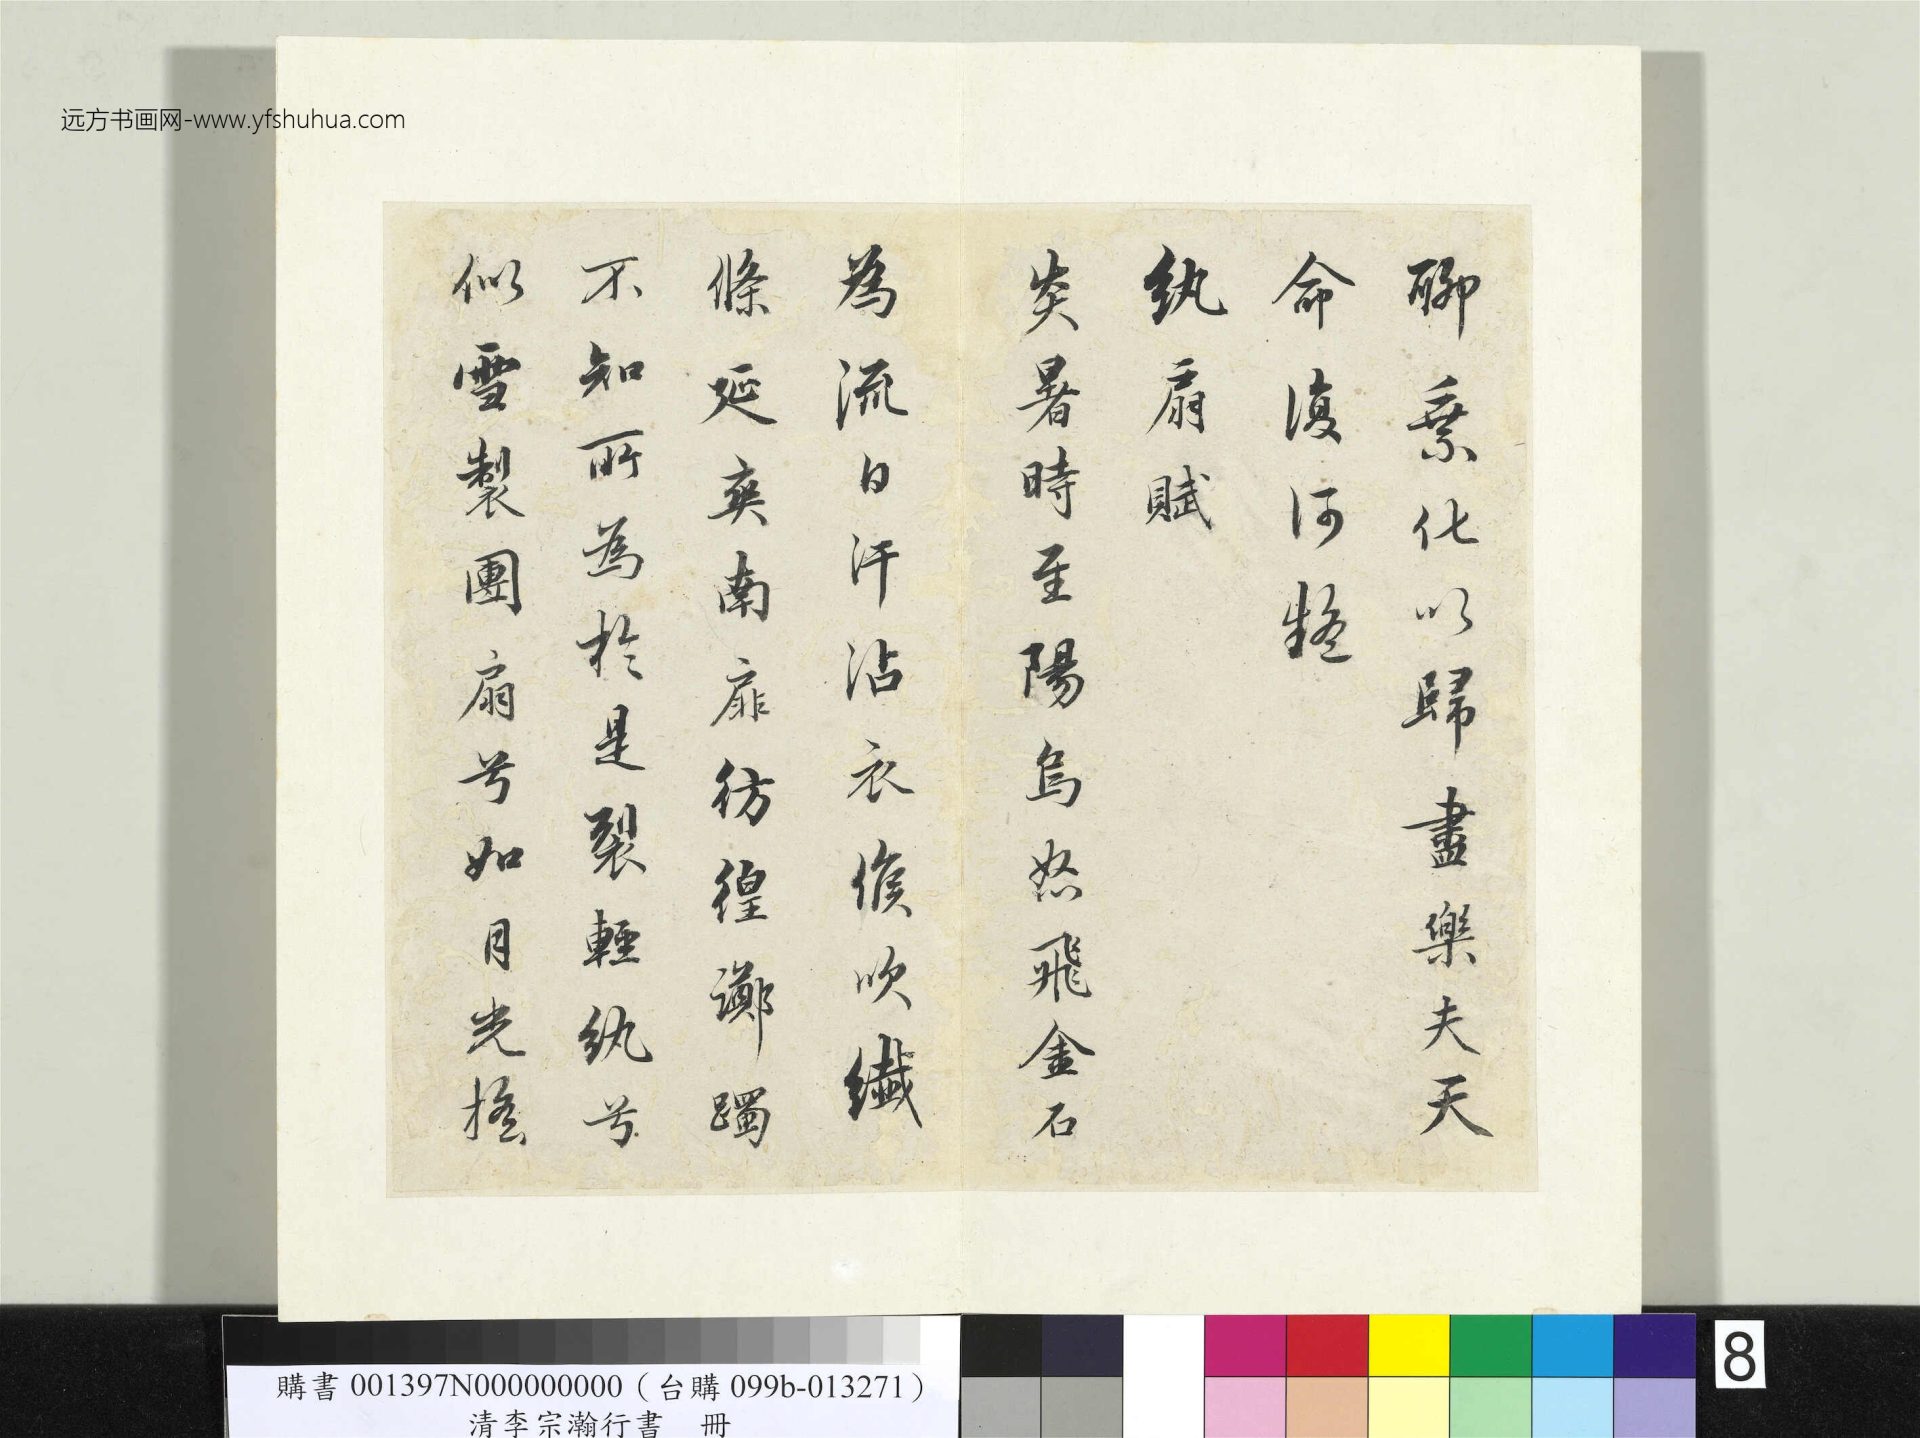 聊乘化以歸盡樂夫天
命復何疑
紈扇賦
炎暑時至陽烏怒飛金石
為流白汗沾衣倏吹纖
絛延爽南扉彷徨躑躅
不知所為於是裂輕紈兮
似雪製團扇兮如月光搖
远方书画网-www.yfshuhua.com
購書 001397N000000000（台購 099b-013271）
清李宗瀚行書　冊
8